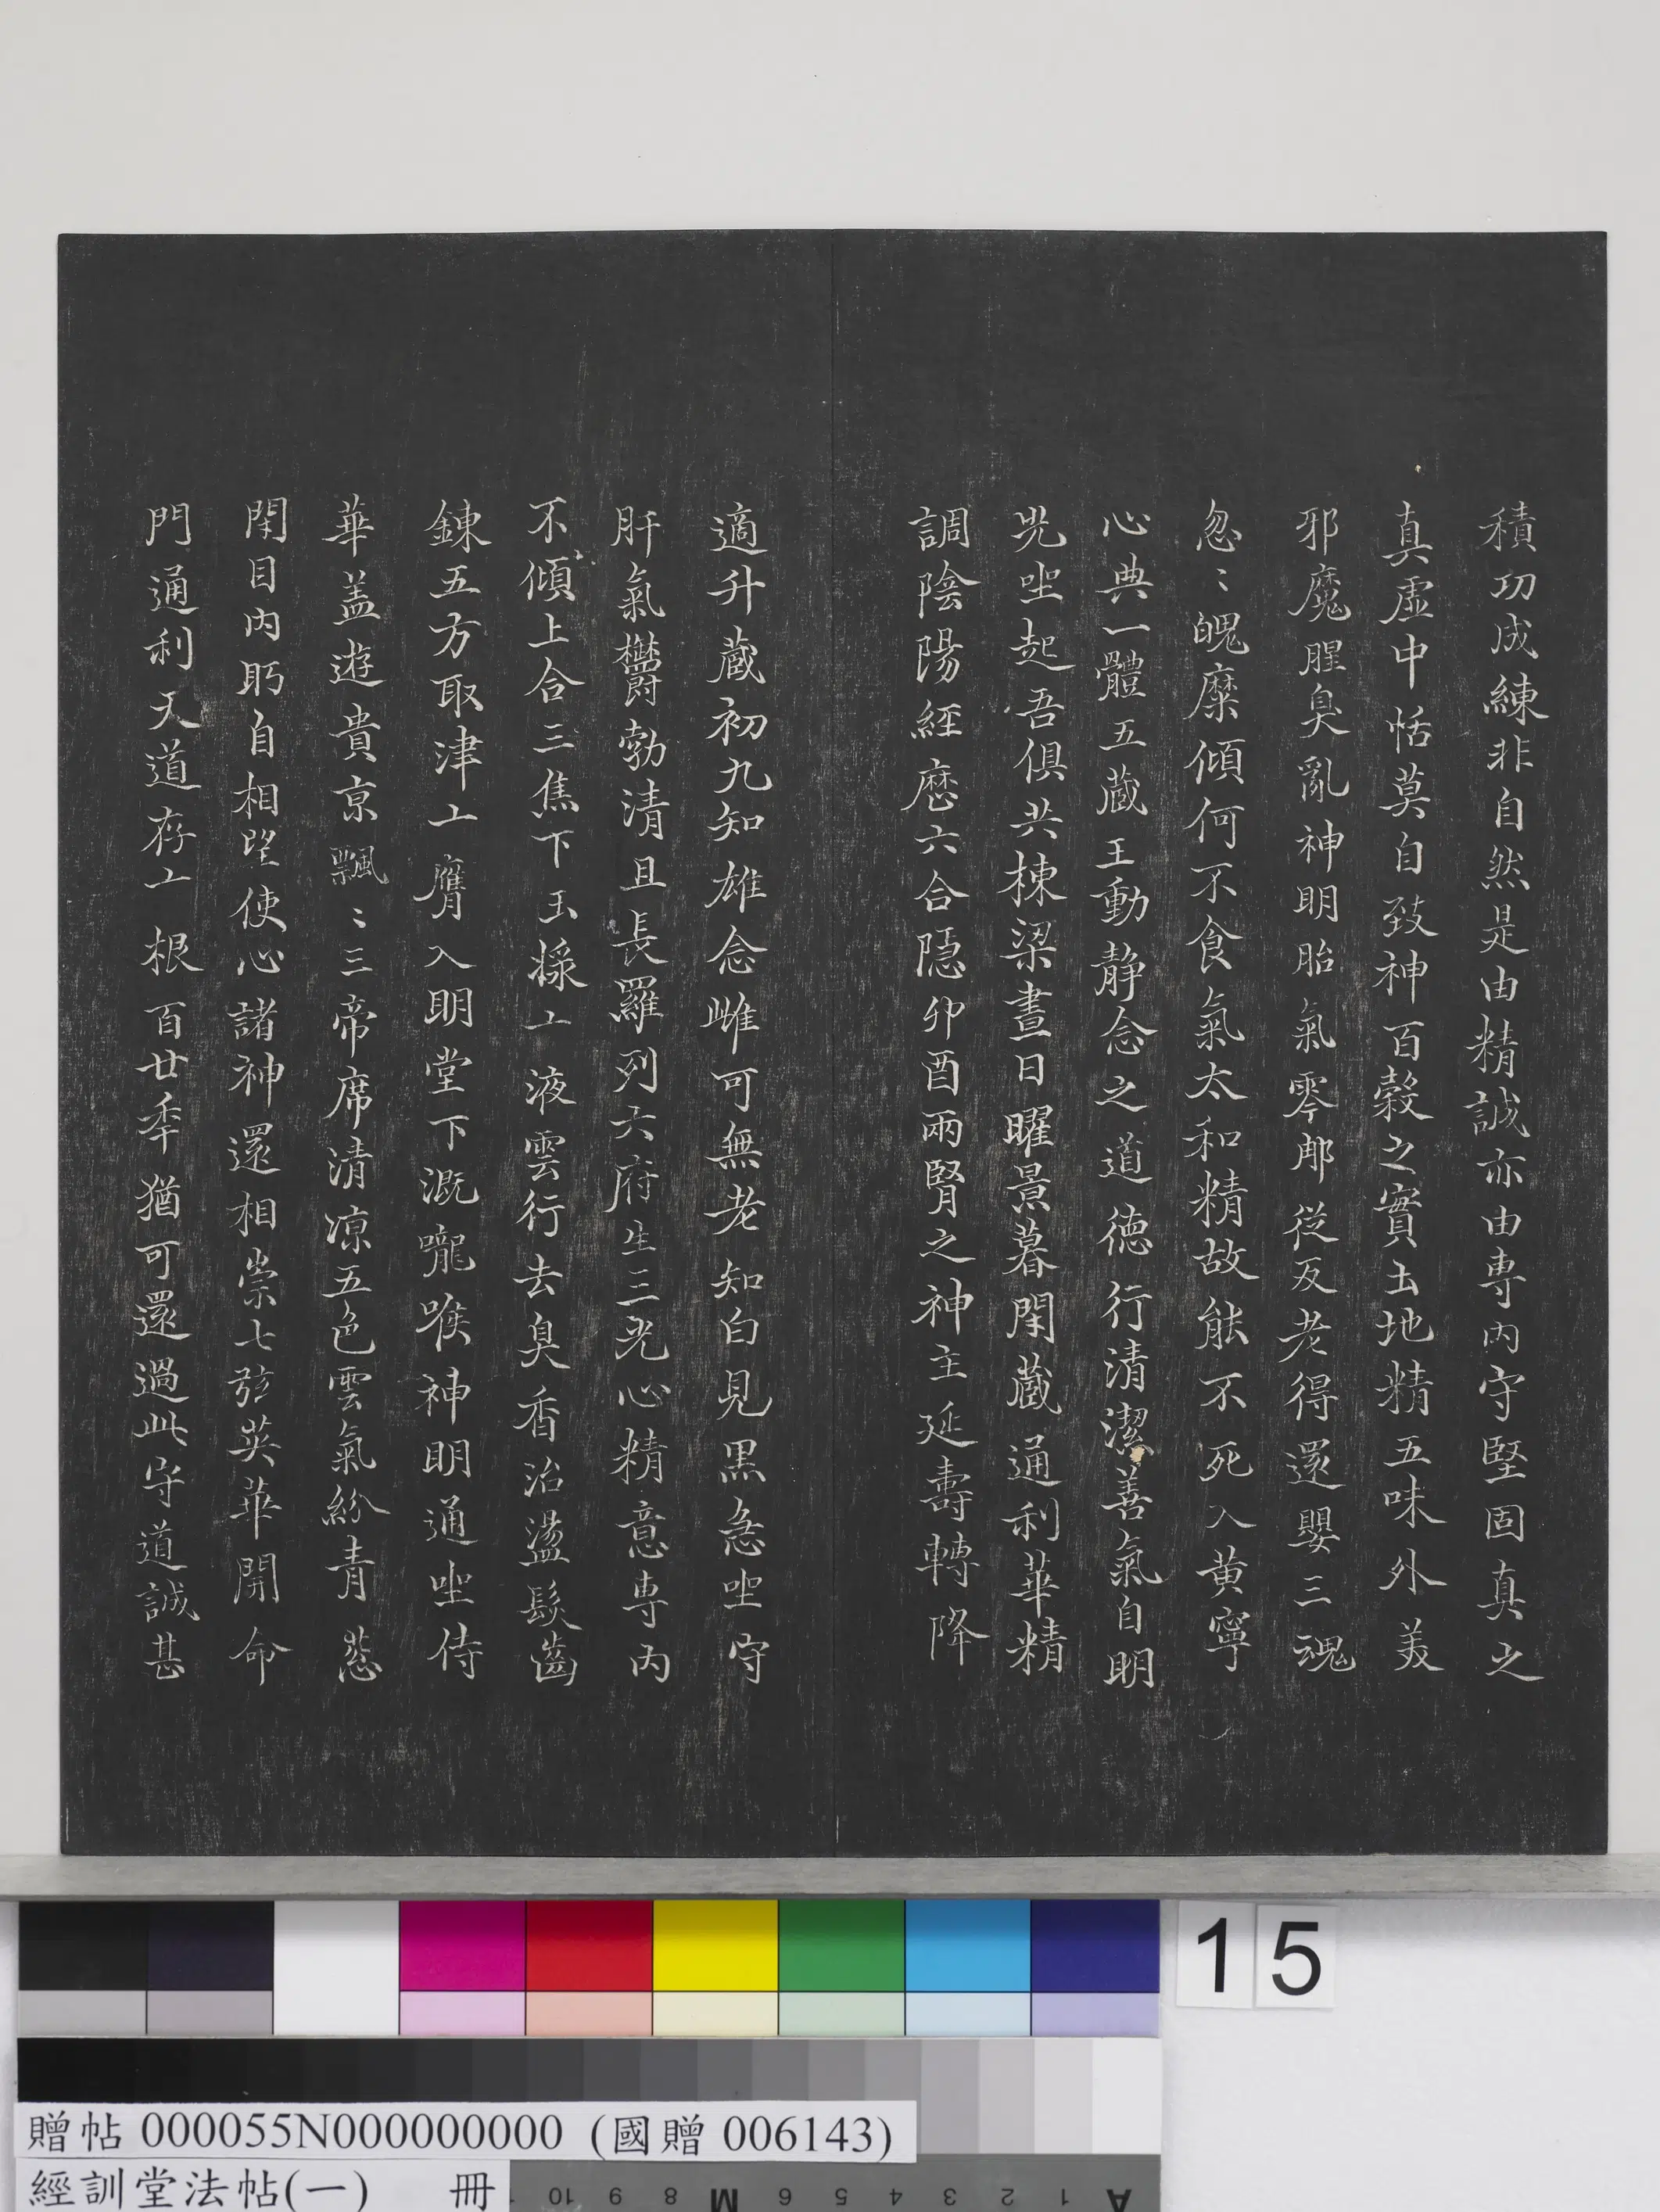 積功成練非自然是由精誠亦由專內守堅固真之
真虛中恬莫自致神百穀之實土地精五味外美
邪魔腥臭亂神明胎氣零那從反老得還嬰三魂
忽〻魄糜傾何不食氣太和精故能不死入黃寧
心典一體五藏王動靜念之道德行清潔善氣自明
光坐起吾俱共棟梁晝日曜景暮閑藏通利華精
調陰陽經歷六合隱卯酉兩腎之神主延壽轉降
適升藏初九知雄念雌可無老知白見黑急坐守
肝氣欝勃清且長羅列六府生三光心精意專內
不傾上合三焦下玉掾亠液雲行去臭香治盪髮齒
鍊五方取津亠膺入明堂下溉嚨喉神明通坐侍
華盖遊貴京飄〻三帝席清凉五色雲氣紛青葱
閑目內眄自相望使心諸神還相崇七玅英華開命
門通利天道存亠根百廿年猶可還過此守道誠甚
15
贈帖 000055N000000000 (國贈 006143)
經訓堂法帖(一) 冊
A 1 2 3 4 5 6 M 8 9 10